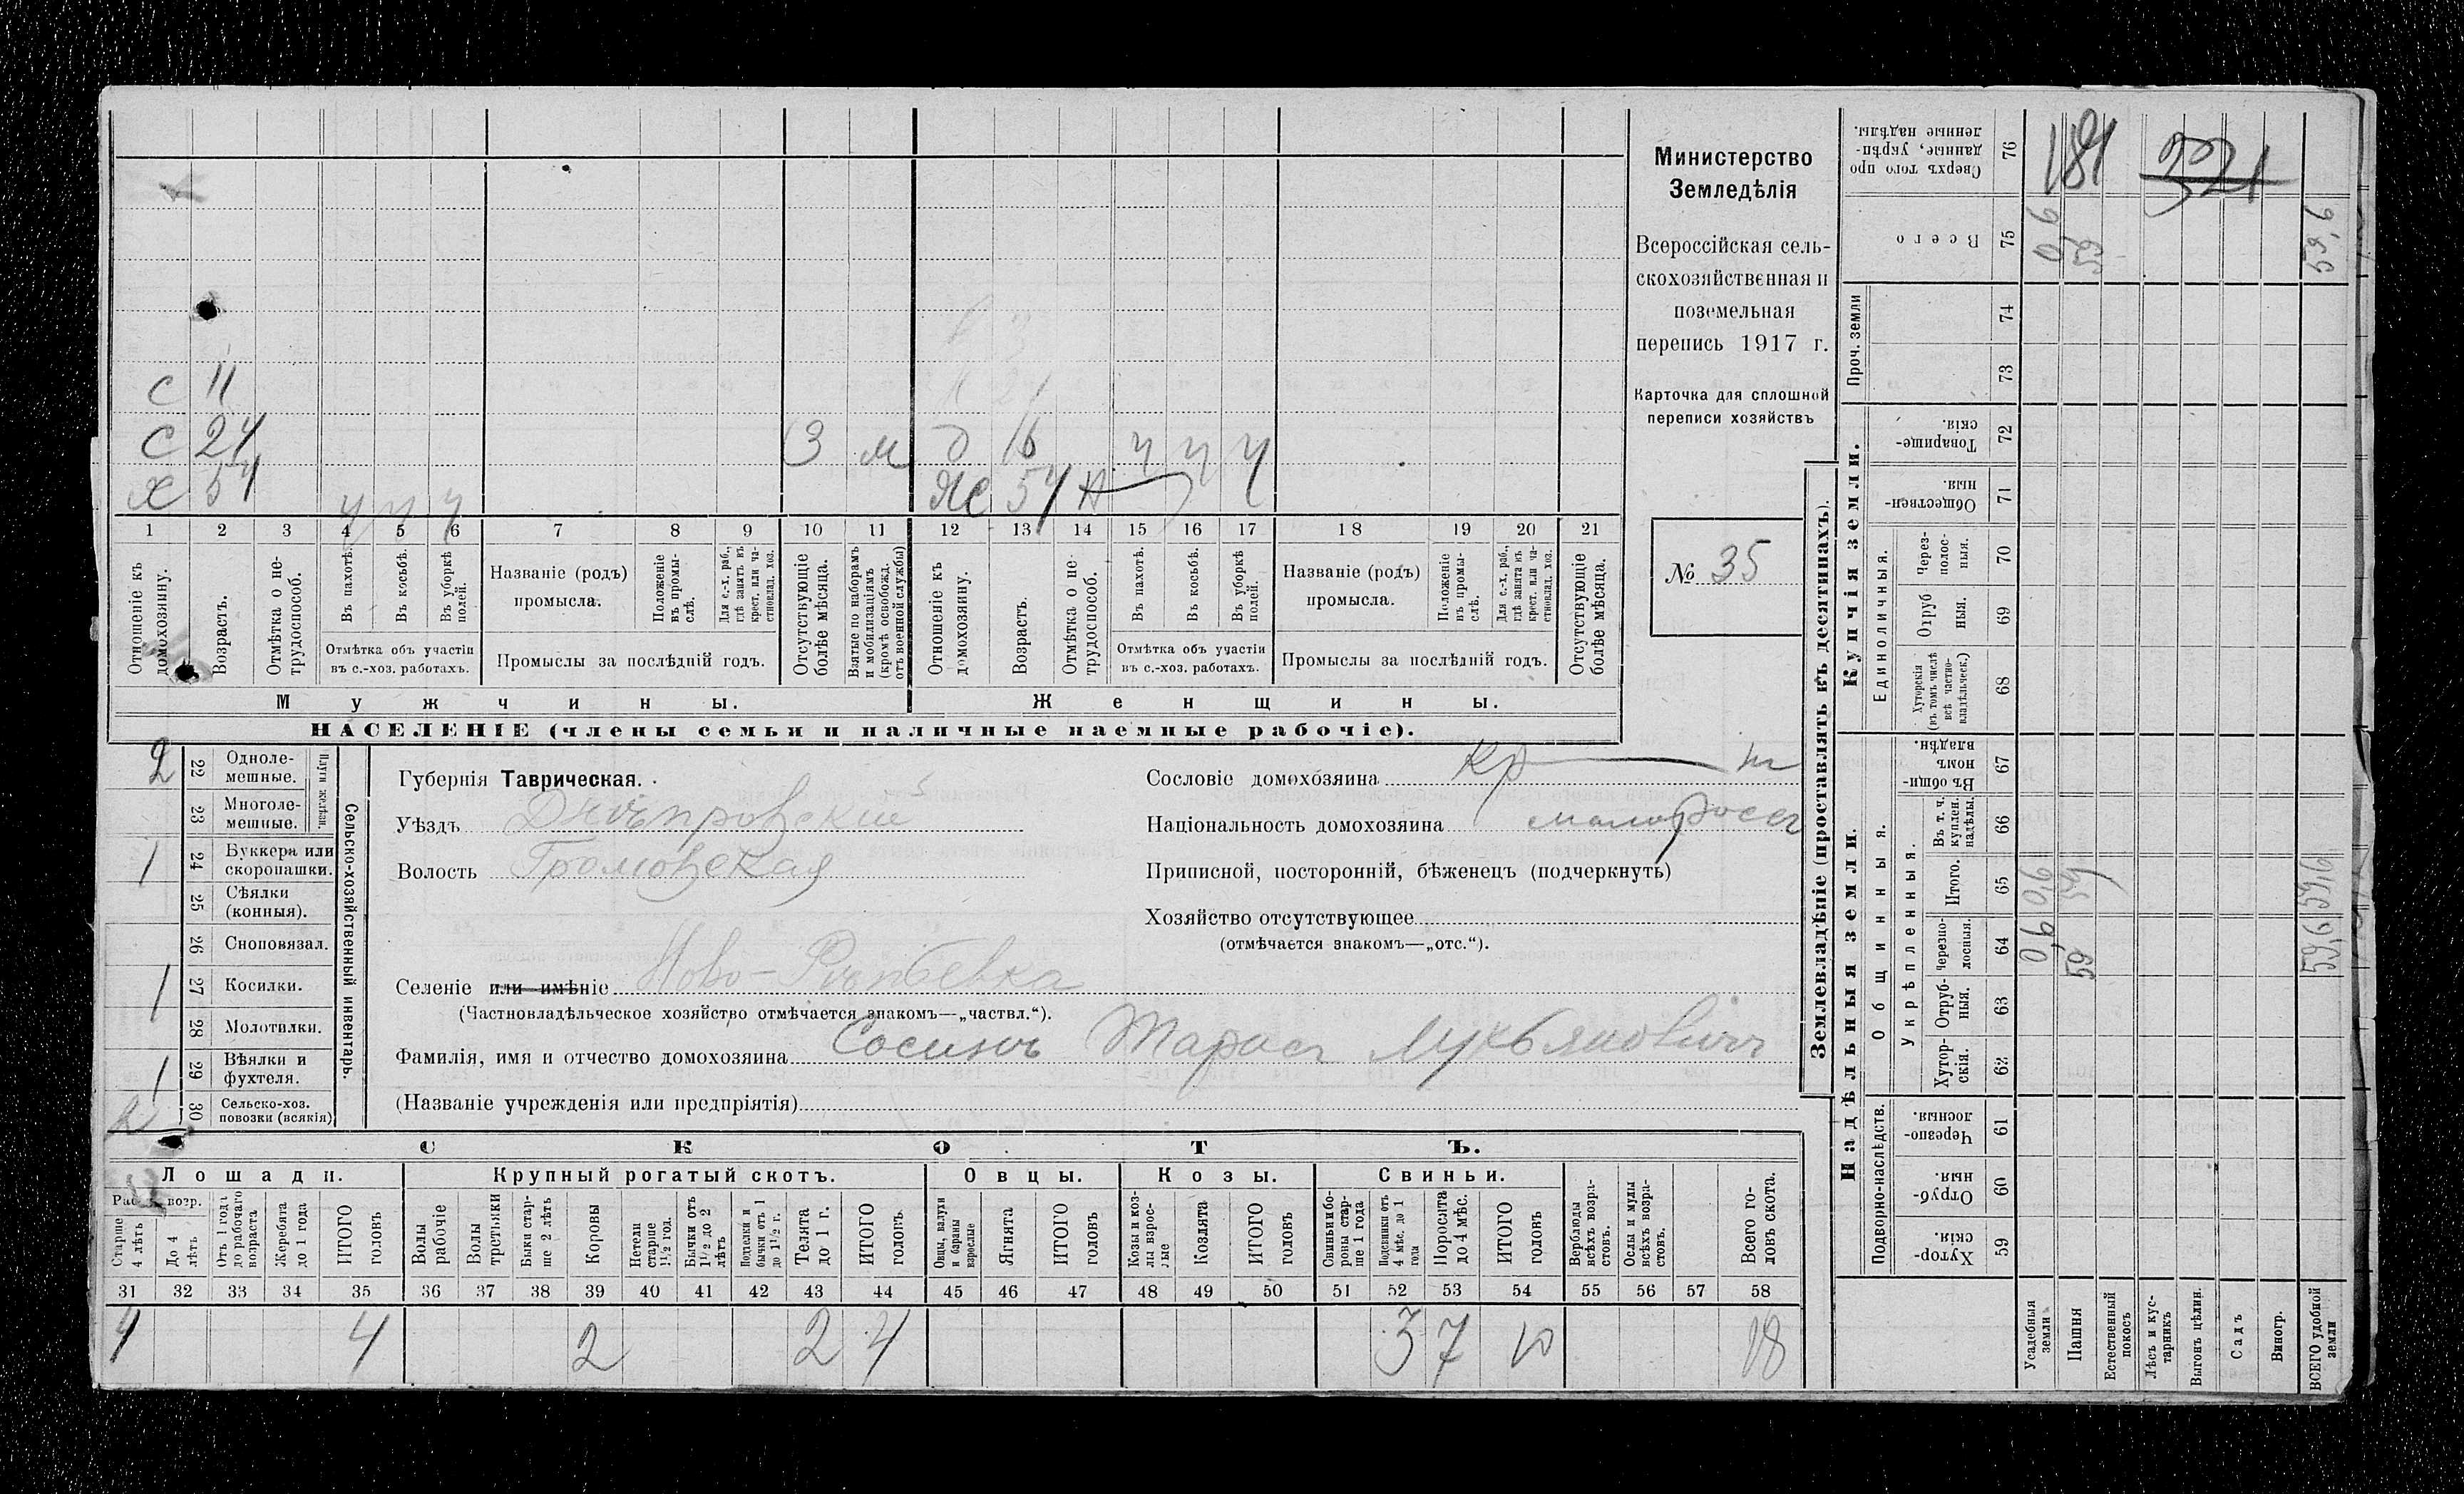 Министерство
Земледѣлія
Всероссійская сель-
скохозяйственная и
поземельная
перепись 1917 г.
Карточка для сплошной
переписи хозяйствъ
№ 35
С 11
С 24 З м д 16 ч ч ч
Х 54 ч ч ч Же 54 н ч
1 2 3 4 5 6 7 8 9 10 11 12 13 14 15 16 17 18 19 20 21
Отношеніе къ домохозяину.
Возрастъ.
Отмѣтка о не-трудоспособ.
Въ пахотѣ.
Въ косьбѣ.
Въ уборкѣ полей.
Отмѣтка объ участіи
въ с.-хоз. работахъ.
Названіе (родъ)
промысла.
Положеніе въ промы-слѣ.
Для с.-х. раб., гдѣ занятъ въ крест. или ча-стновлад. хоз.
Промыслы за послѣдній годъ.
Отсутствующіе болѣе мѣсяца.
Взятые по наборамъ и мобилизаціямъ (кромѣ освобожд. отъ военной службы)
Отношеніе къ домохозяину.
Возрастъ.
Отмѣтка о не-трудоспособ.
Въ пахотѣ.
Въ косьбѣ.
Въ уборкѣ полей.
Отмѣтка объ участіи
въ с.-хоз. работахъ.
Названіе (родъ)
промысла.
Положеніе въ промы-слѣ.
Для с.-х. раб., гдѣ занята въ крест. или ча-стновлад. хоз.
Промыслы за послѣдній годъ.
Отсутствующіе болѣе мѣсяца.
Мужчины. Женщины.
НАСЕЛЕНІЕ (члены семьи и наличные наемные рабочіе).
Сельско-хозяйственный инвентарь.
Плуги желѣзн.
2 22 Одноле-мешные.
23 Многоле-мешные.
1 24 Буккера или скоропашки.
25 Сѣялки (конныя).
26 Сноповязал.
1 27 Косилки.
28 Молотилки.
1 29 Вѣялки и фухтеля.
30 Сельско-хоз. повозки (всякія)
Губернія Таврическая.
Уѣздъ Днѣпровскій
Волость Громовская
Селеніе или имѣніе Ново-Рѣпьевка
(Частновладѣльческое хозяйство отмѣчается знакомъ—„частвл.“).
Фамилія, имя и отчество домохозяина Сосинъ Тарасъ Лукьяновичъ
(Названіе учрежденія или предпріятія)
Сословіе домохозяина Кр — нъ
Національность домохозяина малороссъ
Приписной, посторонній, бѣженецъ (подчеркнуть)
Хозяйство отсутствующее
(отмѣчается знакомъ—„отс.“).
СКОТЪ.
Лошади. Крупный рогатый скотъ. Овцы. Козы. Свиньи.
Старше 4 лѣтъ
До 4 лѣтъ
Отъ 1 года до рабочаго возраста
Жеребята до 1 года
ИТОГО головъ
Волы рабочіе
Волы третьяки
Быки стар-ше 2 лѣтъ
Коровы
Нетели старше 1½ год.
Бычки отъ 1½ до 2 лѣтъ
Подтелки и бычки отъ 1 до 1½ г.
Телята до 1 г.
ИТОГО головъ.
Овцы, валухи и бараны взрослые
Ягнята
ИТОГО головъ
Козы и коз-лы взрос-лые
Козлята
ИТОГО головъ
Свиньи и бо-ровы стар-ше 1 года
Подсвинки отъ 4 мѣс. до 1 года
Поросята до 4 мѣс.
ИТОГО головъ
Верблюды всѣхъ возра-стовъ.
Ослы и мулы всѣхъ возра-стовъ.
Всего го-ловъ скота.
31 32 33 34 35 36 37 38 39 40 41 42 43 44 45 46 47 48 49 50 51 52 53 54 55 56 57 58
4 4 2 2 4 3 7 10 18
Землевладѣніе (проставлять въ десятинахъ).
Надѣльныя земли.
Купчія земли.
Проч. земли
Подворно-наслѣдств.
Общинныя.
Укрѣпленныя.
Единоличныя.
Хутор-скія. 59
Отруб-ныя. 60
Черезпо-лосныя 61
Хутор-скія. 62
Отруб-ныя. 63
Черезпо-лосныя. 64 0,6 59 59,6
Итого. 65 0,6 59 59,6
Въ т. ч. куплен. надѣлы. 66
Въ общи-номъ владѣн. 67
Хуторскія (въ томъ числѣ всѣ частно-владѣльческ.) 68
Отруб ныя. 69
Через-полос-ныя. 70
Обществен-ныя. 71
Товарище-скія. 72
73
74
Всего 75 0,6 59 59,6
Сверхъ того про данные, укрѣп-ленные надѣлы. 76
181 321
Усадебныя земли
Пашня
Естественный покосъ
Лѣсъ и кус-тарникъ
Выгонъ цѣлин.
Садъ
Виногр.
ВСЕГО удобной земли